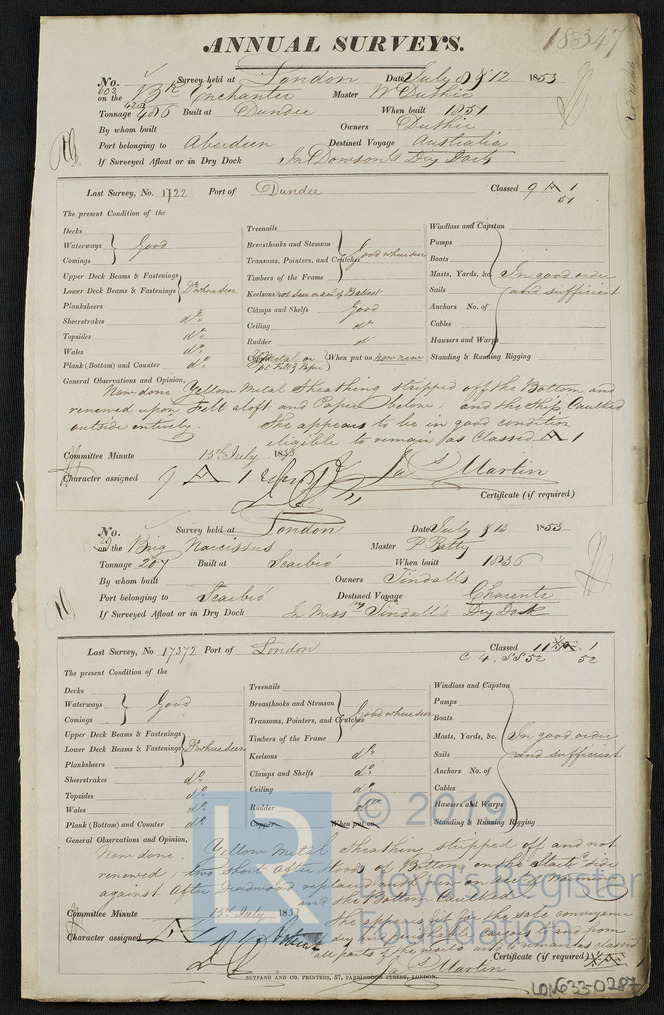 ANNUAL SURVEYS.
18347
No. 603 Survey held at London Date July 8 & 12 1853
on the Bk Enchanter Master W Duthie
Tonnage 486 Built at Dundee When built 1851
By whom built Owners Duthie
Port belonging to Aberdeen Destined Voyage Australia
If Surveyed Afloat or in Dry Dock In Dowson's Dry Dock
Last Survey, No. 1722 Port of Dundee Classed 9 A 1
51
The present Condition of the
Decks
Waterways Good
Comings
Upper Deck Beams & Fastenings
Lower Deck Beams & Fastenings Do where seen
Planksheers
Sheerstrakes do
Topsides do
Wales do
Plank (Bottom) and Counter do
Treenails
Breasthooks and Stemson
Transoms, Pointers, and Crutches Good where seen
Timbers of the Frame
Keelsons not seen on acct of Ballast
Clamps and Shelfs Good
Ceiling do
Rudder do
Copper Y Metal on Felt & Paper When put on now new
Windlass and Capstan
Pumps
Boats
Masts, Yards, &c. In good order
Sails and sufficient
Anchors No. of
Cables
Hawsers and Warps
Standing & Running Rigging
General Observations and Opinion,
Now done Yellow Metal Sheathing stripped off the Bottom and
renewed upon Felt aloft and Paper below, and the Ship Caulked
outside entirely. She appears to be in good condition
eligible to remain as Classed A 1
Committee Minute 15th July 1853
Character assigned 9 A 1 Jas Martin
Certificate (if required)
No. Survey held at London Date July 8 13 1853
on the Brig Narcissus Master P Batty
Tonnage 207 Built at Scarbro' When built 1836
By whom built Owners Tindalls
Port belonging to Scarbro' Destined Voyage Charente
If Surveyed Afloat or in Dry Dock In Messrs Tindall's Dry Dock
Last Survey, No 17372 Port of London Classed
52
The present Condition of the
Decks
Waterways Good
Comings
Upper Deck Beams & Fastenings
Lower Deck Beams & Fastenings Do where seen
Planksheers
Sheerstrakes do
Topsides do
Wales do
Plank (Bottom) and Counter do
Treenails
Breasthooks and Stemson
Transoms, Pointers, and Crutches Good where seen
Timbers of the Frame
Keelsons do
Clamps and Shelfs do
Ceiling do
Rudder do
Copper When put on
Windlass and Capstan
Pumps
Boats
Masts, Yards, &c. In good order
Sails and sufficient
Anchors No. of
Cables
Hawsers and Warps
Standing & Running Rigging
General Observations and Opinion,
Now done. Yellow Metal Sheathing stripped off and not
renewed; two short after hoods of Bottom on the Starbd side
against After deadwood replaced by new on acct
and the Bottom Caulked
Committee Minute 15th July 1853 She appears fit for the safe conveyance
Character assigned A 1 dry and perishable cargoes to and from
all parts of the world and to remain as classed
Certificate (if required)
Jas Martin
SEYFANG AND CO. PRINTERS, 57, FARRINGDON STREET, LONDON.
LON633-0287
LR
© 2019
Lloyd's Register
Foundation